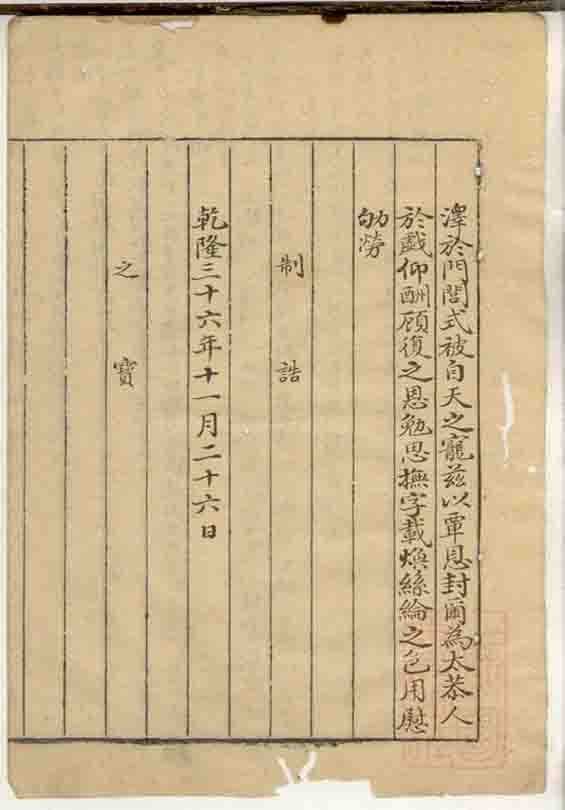 澤於門閭式被自天之寵茲以覃恩封爾為太恭人
於戲仰酬顧復之恩勉思撫字載煥絲綸之色用慰
劬勞
制誥
乾隆三十六年十一月二十六日
之寶